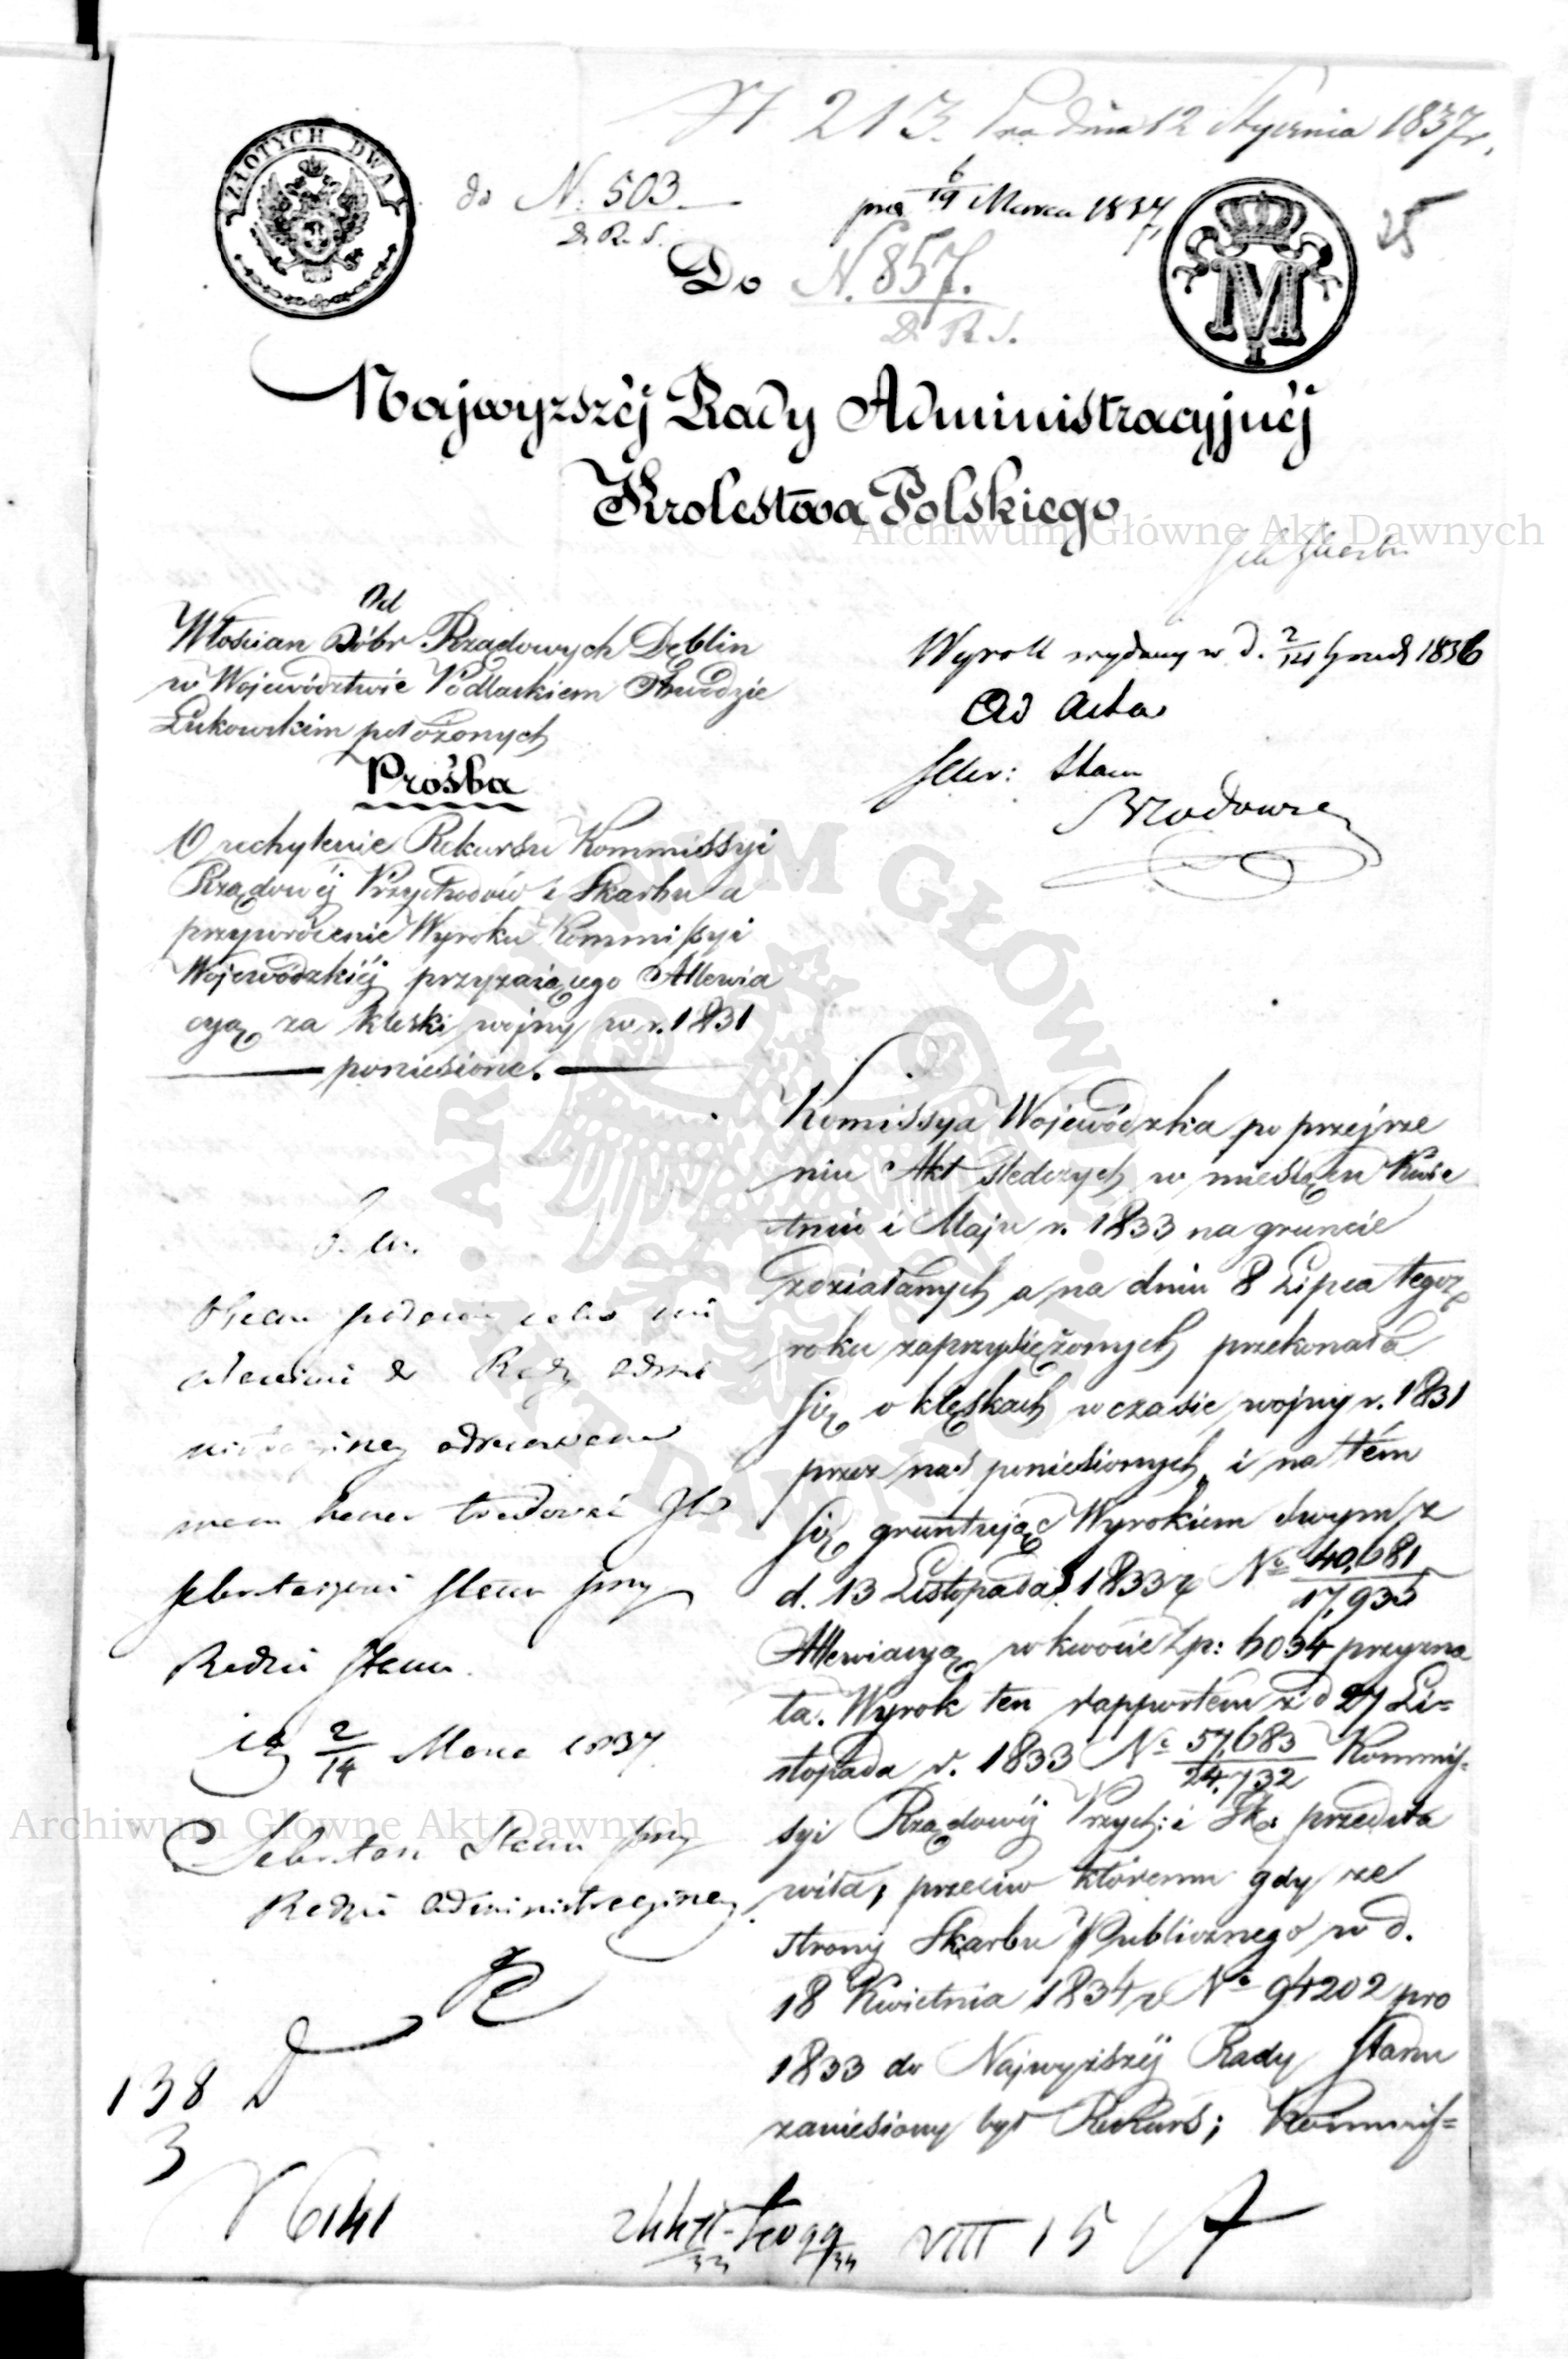 N 213. Pra dnia 12 Stycznia 1837 r.
ZŁOTYCH DWA
do N. 503
D. R. S.
pra 6/19 Marca 1837
25
Do N. 857.
D. R. S.
M
Najwyzszéj Rady Administracyjnéj
Krolestwa Polskiego
Archiwum Główne Akt Dawnych
Od
Włoscian Dóbr Rządowych Dęblin
w Województwie Podlaskiem Obwodzie
Łukowskim położonych
Prośba
O uchylenie Rekursu Kommissyi
Rządowéj Przychodów i Skarbu a
przywrócenie Wyroku Kommissyi
Wojewódzkiéj przyznaiącego Allewia
cyą za klęski wojny w r. 1831
poniesione.
Wyrok wydany w d. 2/14 Grud 1836
Ad Acta
Sekr: Stanu
ARCHIWUM GŁÓWNE AKT DAWNYCH
Komissya Wojewódzka po przejrze
niu Akt sledczych w miesiącu Kwie
tniu i Maju r. 1833 na gruncie
zdziałanych a na dniu 8 Lipca tegoż
roku zaprzysiężonych przekonała
się o klęskach w czasie wojny r. 1831
przez nas poniesionych, i na tém
się gruntując Wyrokiem swym z
d. 13 Listopada 1833 r. No 40,681/17,935
Allewiacyą w kwocie Zp: 6034 przyzna
ła. Wyrok ten rapportem z d 27 Li=
stopada r. 1833 No 57,683/24,732 Kommis=
syi Rządowéj Przych: i Sk: przedsta
wiła, przeciw któremu gdy ze
strony Skarbu Publicznego w d.
18 Kwietnia 1834 r No 94202 pro
1833 do Najwyższéj Rady Stanu
zaniesiony był Rekurs; Kommis=
adressowane
Radzie Stanu.
2/14 Marca 1837
Archiwum Główne Akt Dawnych
Sekretarz Stanu przy
Radzie Administracyjney
138
3
6141
VIII 15